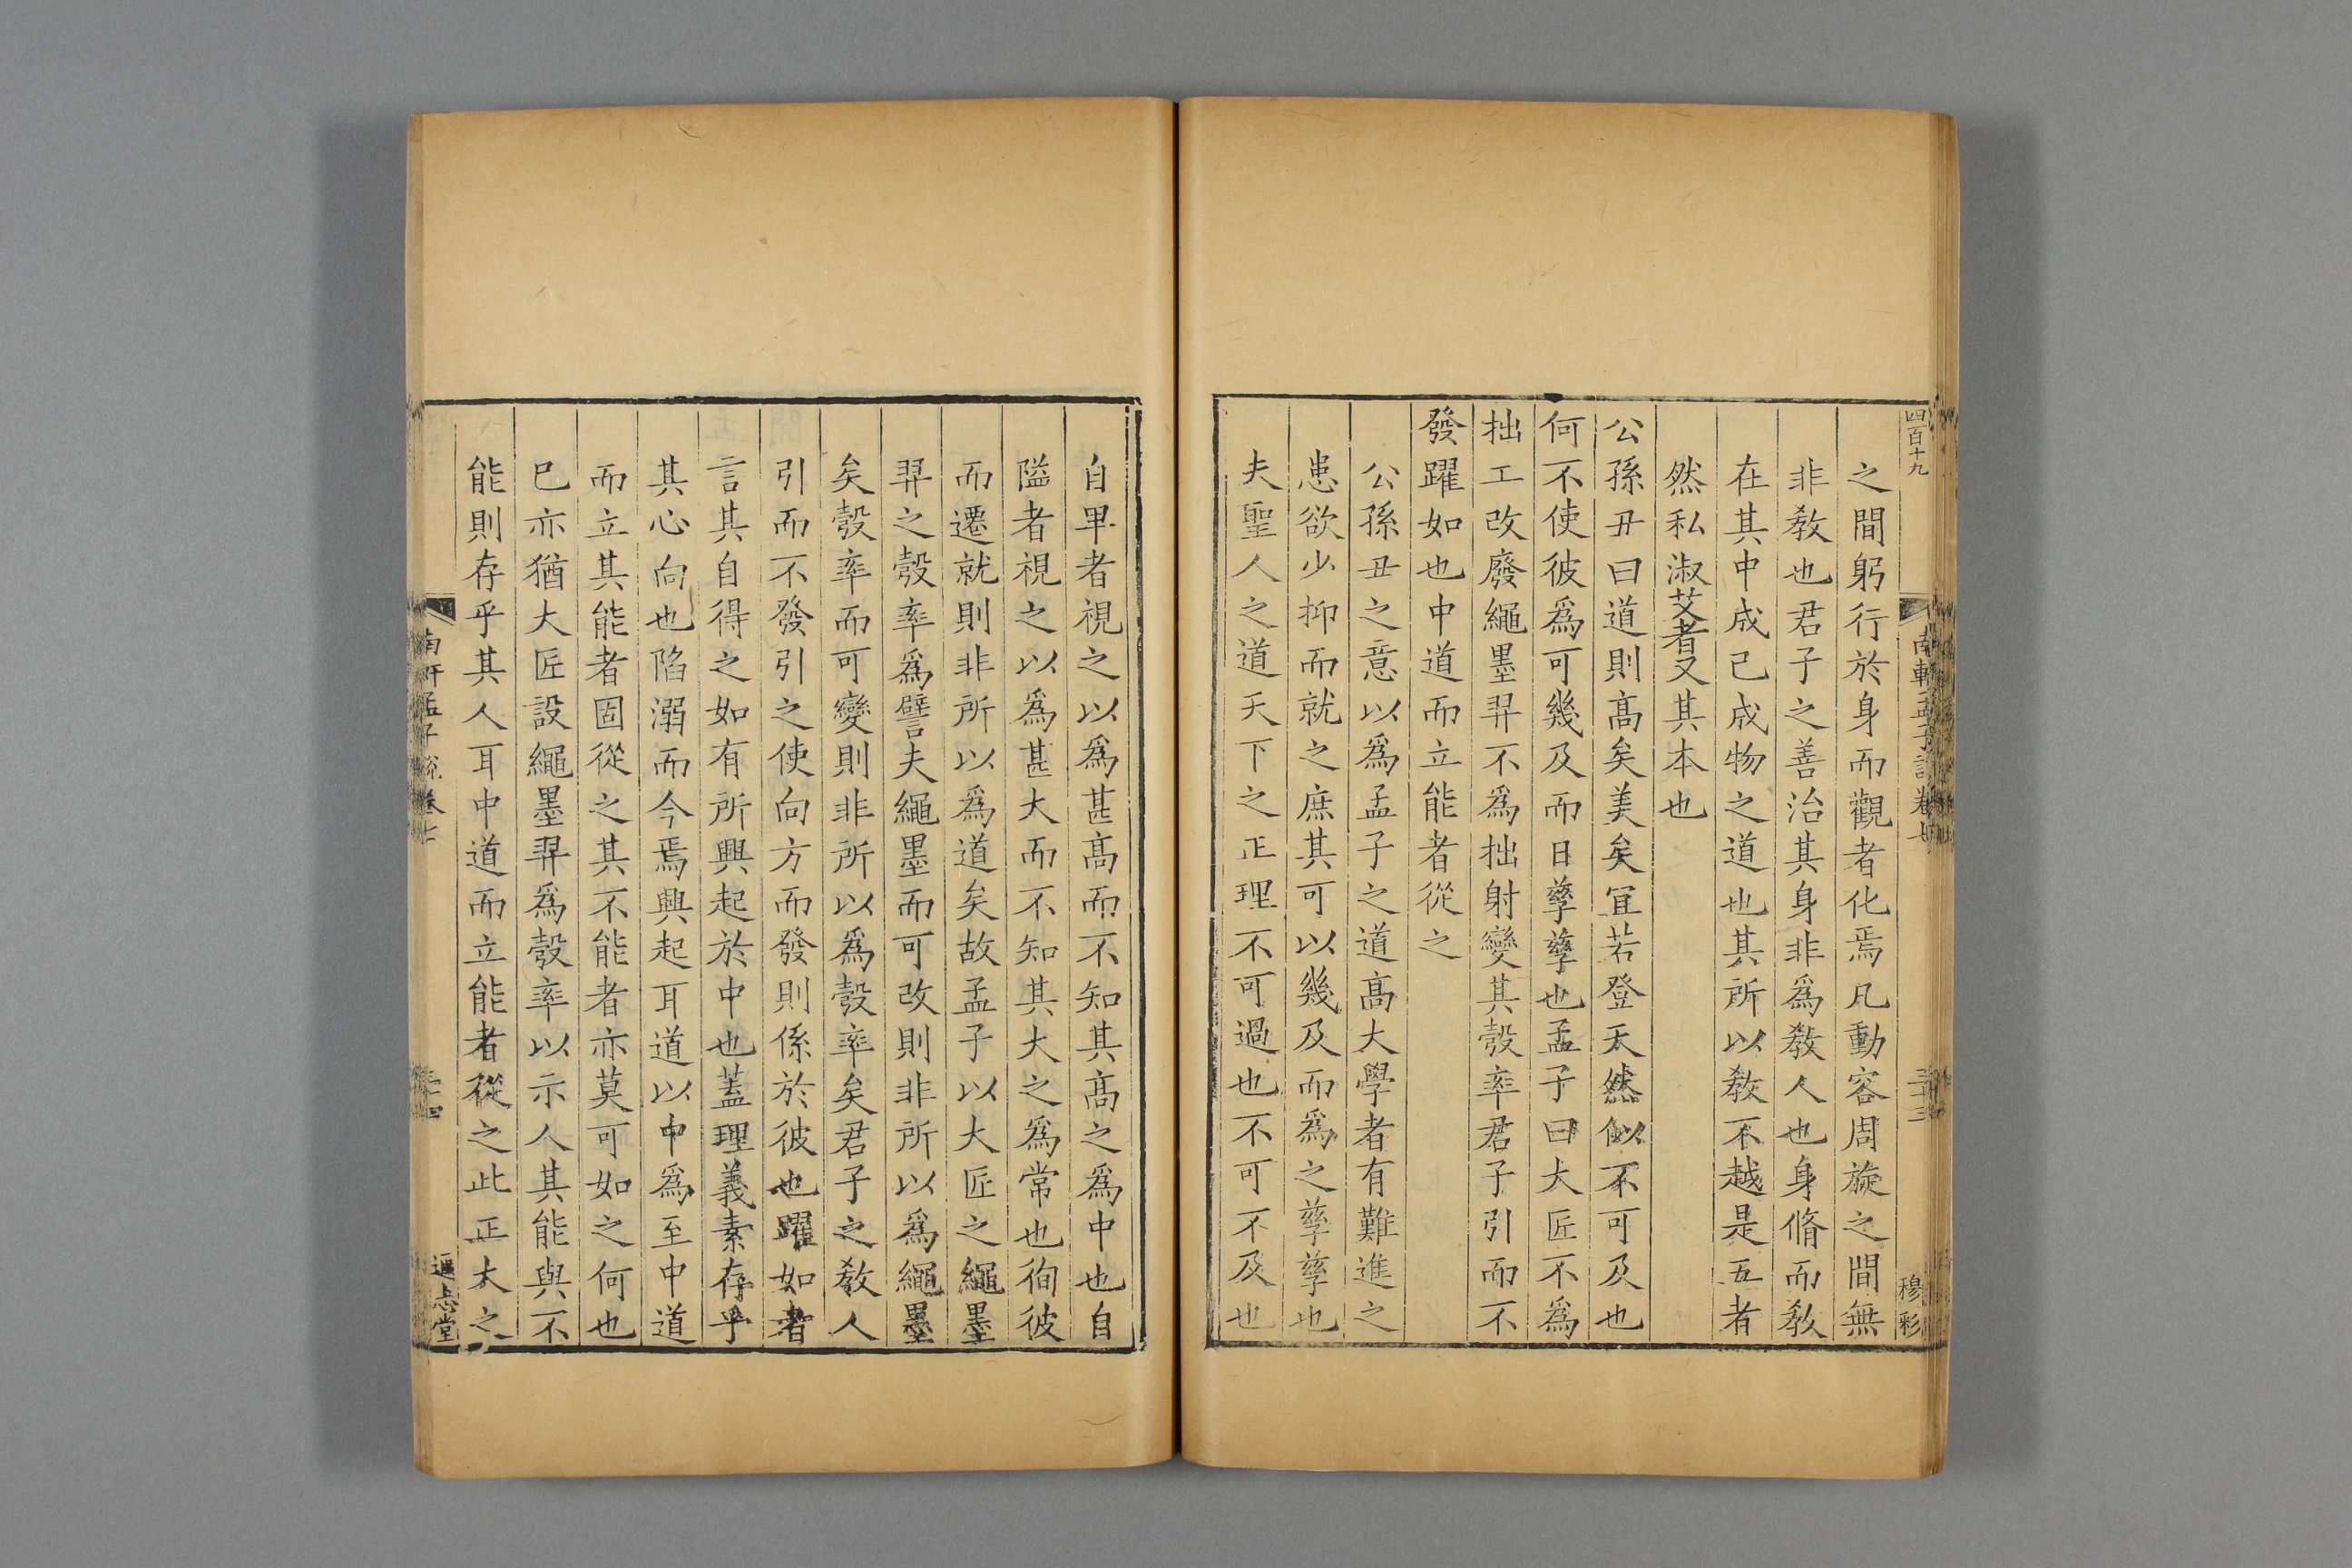 四百十九
南軒孟子說卷七
三十三
穆彩
之間躬行於身而觀者化焉凡動容周旋之間無
非教也君子之善治其身非爲教人也身脩而教
在其中成己成物之道也其所以教不越是五者
然私淑艾者又其本也
公孫丑曰道則髙矣美矣宜若登天然似不可及也
何不使彼爲可幾及而日孳孳也孟子曰大匠不爲
拙工改廢繩墨羿不爲拙射變其彀率君子引而不
發躍如也中道而立能者從之
公孫丑之意以爲孟子之道髙大學者有難進之
患欲少抑而就之庶其可以幾及而爲之孳孳也
夫聖人之道天下之正理不可過也不可不及也
自卑者視之以爲甚髙而不知其髙之爲中也自
隘者視之以爲甚大而不知其大之爲常也徇彼
而遷就則非所以爲道矣故孟子以大匠之繩墨
羿之彀率爲譬夫繩墨而可改則非所以爲繩墨
矣彀率而可變則非所以爲彀率矣君子之教人
引而不發引之使向方而發則係於彼也躍如者
言其自得之如有所興起於中也蓋理義素存乎
其心向也陷溺而今焉興起耳道以中爲至中道
而立其能者固從之其不能者亦莫可如之何也
已亦猶大匠設繩墨羿爲彀率以示人其能與不
能則存乎其人耳中道而立能者從之此正大之
南軒孟子說卷七
三十四
通志堂